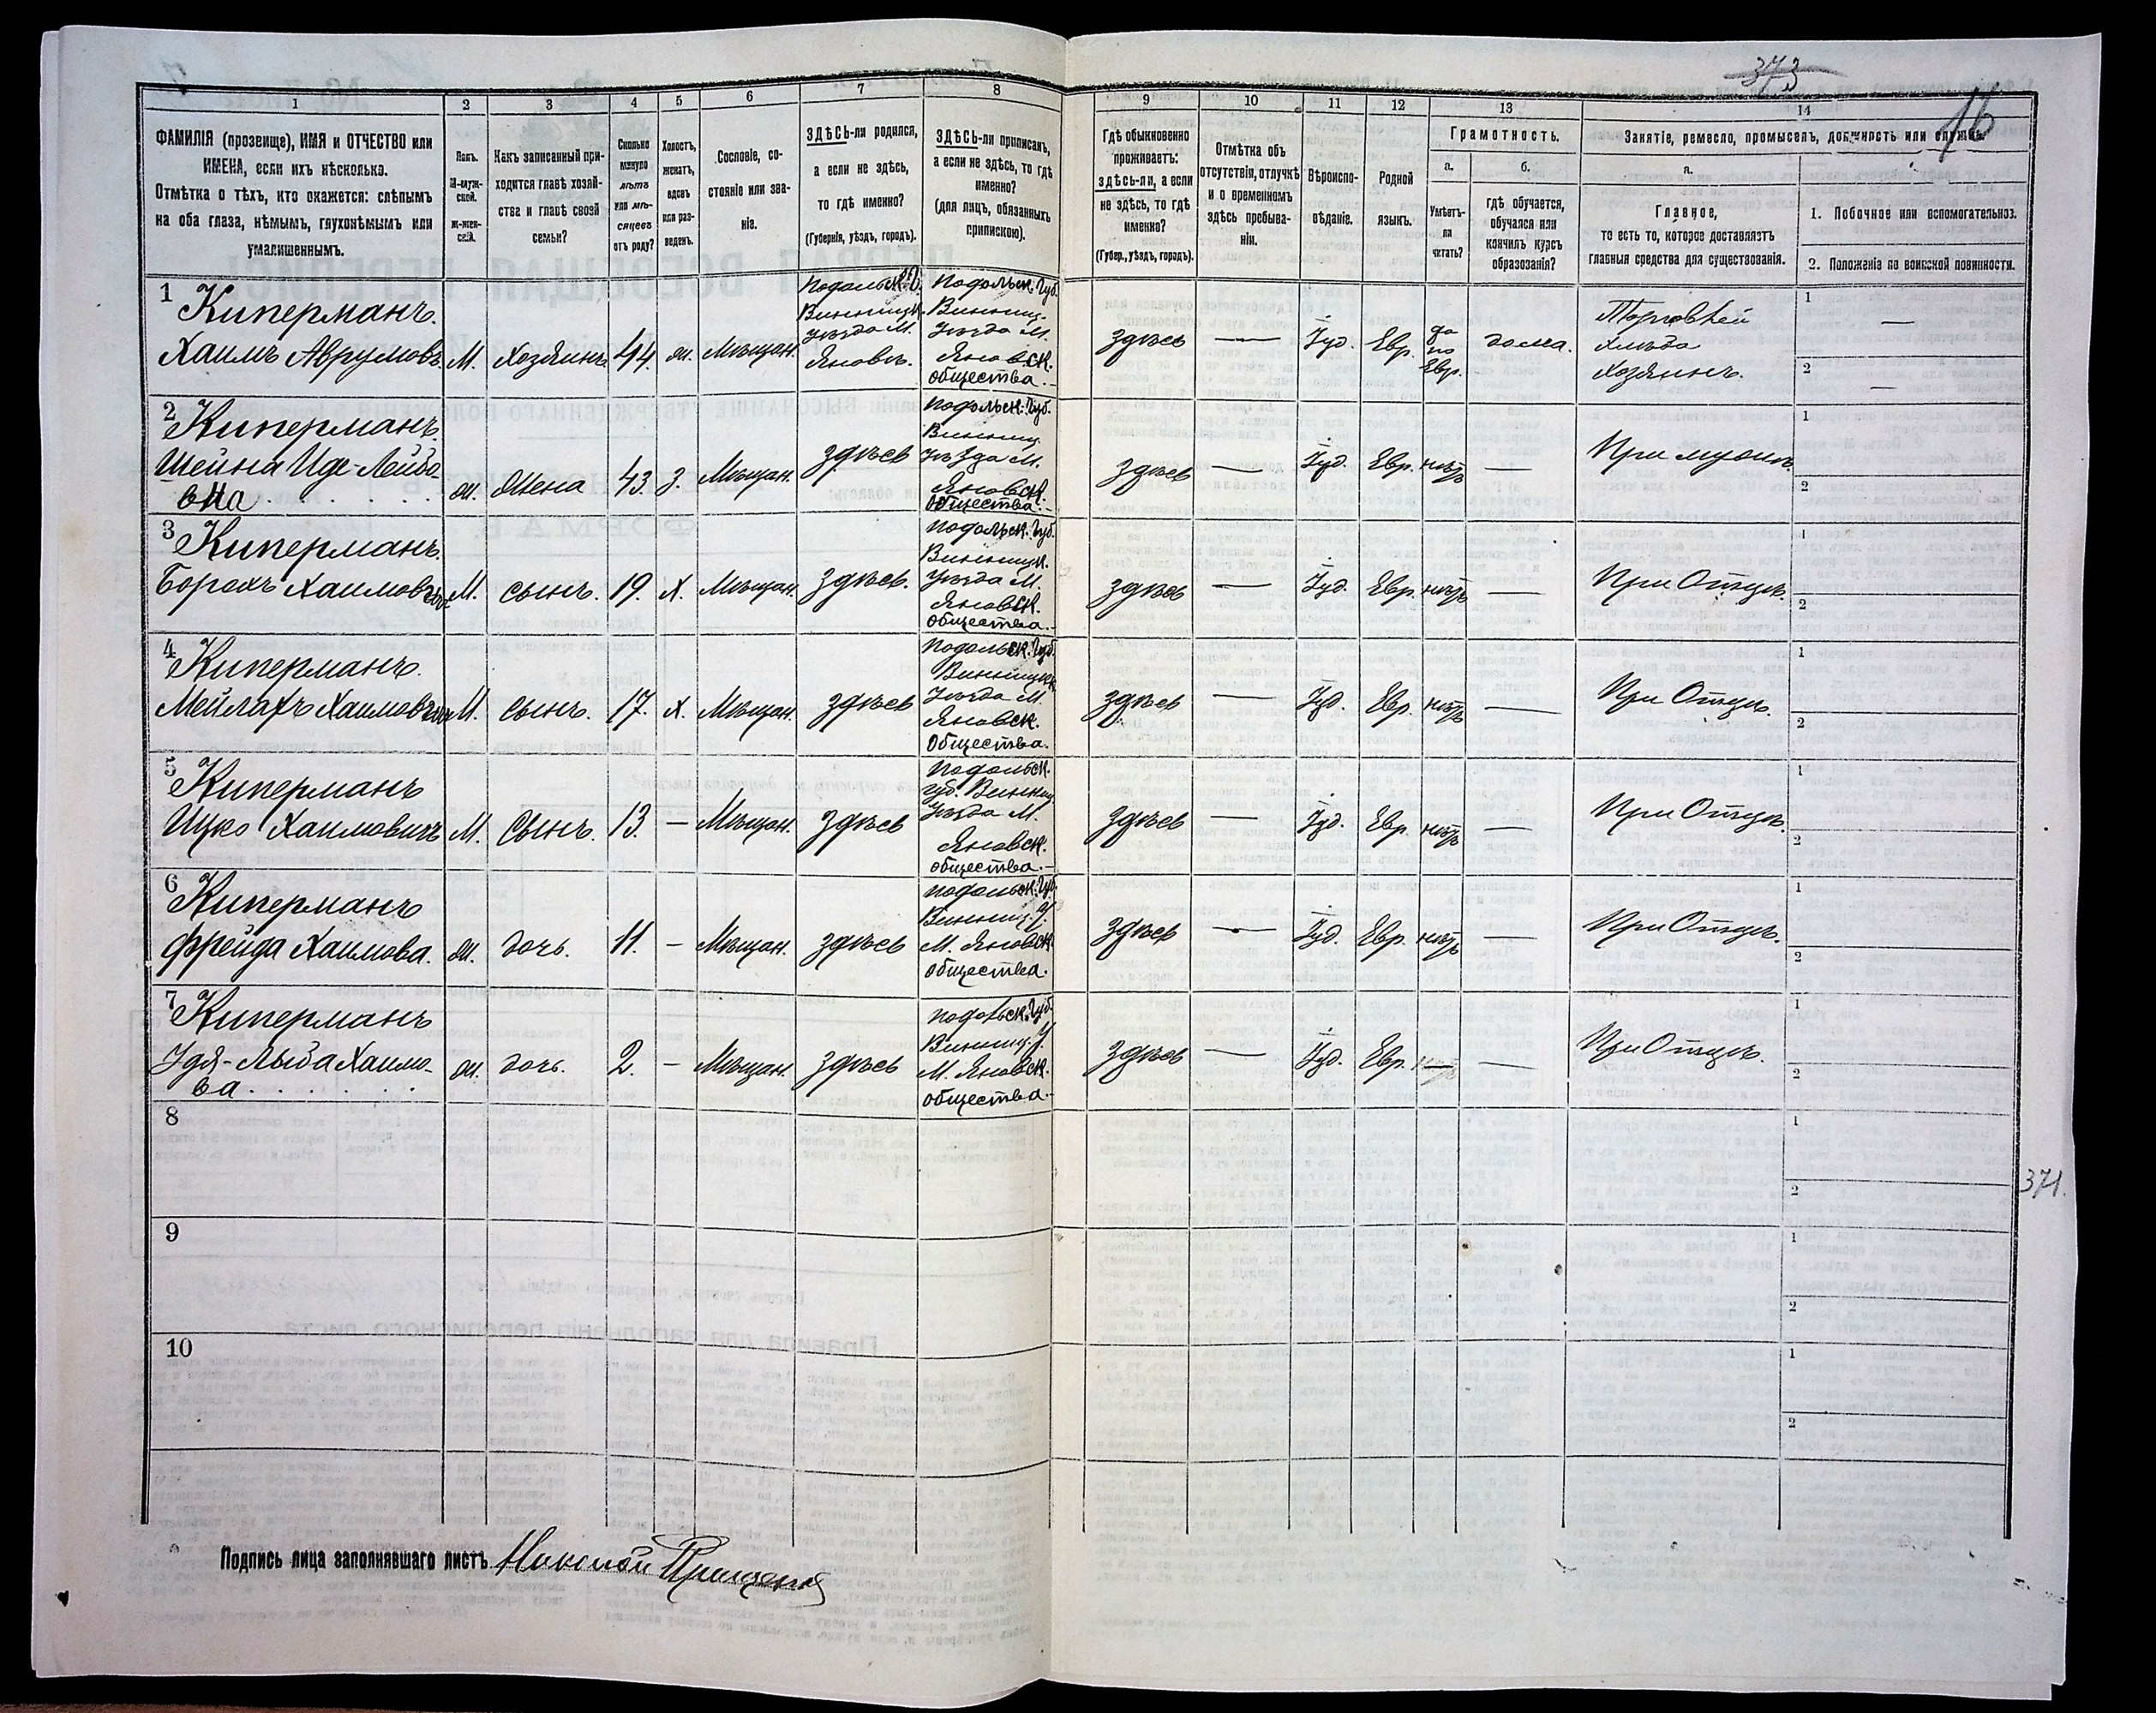 373
16
1
2
3
4
5
6
7
8
9
10
11
12
13
14
ФАМИЛІЯ (прозвище), ИМЯ и ОТЧЕСТВО или
ИМЕНА, если ихъ нѣсколько.
Отмѣтка о тѣхъ, кто окажется: слѣпымъ
на оба глаза, нѣмымъ, глухонѣмымъ или
умалишеннымъ.
Полъ.
М-муж-
ской.
Ж-жен-
скій.
Какъ записанный при-
ходится главѣ хозяй-
ства и главѣ своей
семьи?
Сколько
минуло
лѣтъ
или мѣ-
сяцевъ
отъ роду?
Холостъ,
женатъ,
вдовъ
или раз-
веденъ.
Сословіе, со-
стояніе или зва-
ніе.
ЗДѢСЬ-ли родился,
а если не здѣсь,
то гдѣ именно?
(Губернія, уѣздъ, городъ).
ЗДѢСЬ-ли приписанъ,
а если не здѣсь, то гдѣ
именно?
(для лицъ, обязанныхъ
припискою).
Гдѣ обыкновенно
проживаетъ:
здѣсь-ли, а если
не здѣсь, то гдѣ
именно?
(Губер., уѣздъ, городъ).
Отмѣтка объ
отсутствіи, отлучкѣ
и о временномъ
здѣсь пребыва-
ніи.
Вѣроиспо-
вѣданіе.
Родной
языкъ.
Грамотность.
а.
Умѣетъ-
ли
читать?
б.
гдѣ обучается,
обучался или
кончилъ курсъ
образованія?
Занятіе, ремесло, промыселъ, должность или служба.
а.
Главное,
то есть то, которое доставляетъ
главныя средства для существованія.
1. Побочное или вспомогательное.
2. Положеніе по воинской повинности.
1 Киперманъ.
Хаимъ Аврумовъ. М. Хозяинъ 44. ж. Мѣщан.
Подольск. Г.
Винницк.
Уѣзда М.
Яновъ.
Подольск. Губ.
Винниц.
Уѣзда М.
Яновск.
общества.
здѣсь — Іуд. Евр.
да
по
Евр.
дома.
Торговлей
хлѣба
хозяинъ.
1 —
2 —
2 Киперманъ
Шейна Иде-Лейбо-
вна ж. Жена 43. З. Мѣщан. здѣсь
Подольск. Губ.
Винниц.
Уѣзда М.
Яновск.
общества.
здѣсь — Іуд. Евр. нѣтъ — При мужѣ.
1
2
3 Киперманъ.
Борохъ Хаимовичъ М. сынъ. 19. Х. Мѣщан. здѣсь.
Подольск. Губ.
Винницк.
Уѣзда М.
Яновск.
общества.
здѣсь — Іуд. Евр. нѣтъ — При Отцѣ.
1
2
4 Киперманъ.
Мейлахъ Хаимовичъ М. сынъ. 17. Х. Мѣщан. здѣсь
Подольск. Губ.
Винницк.
Уѣзда М.
Яновск.
Общества.
здѣсь — Іуд. Евр. нѣтъ — При Отцѣ.
1
2
5 Киперманъ
Ицко Хаимовичъ М. Сынъ. 13. — Мѣщан. здѣсь
Подольск.
губ. Винниц.
Уѣзда М.
Яновск.
общества.
здѣсь — Іуд. Евр. нѣтъ — При Отцѣ.
1
2
6 Киперманъ
Фрейда Хаимова. ж. дочь. 11. — Мѣщан. здѣсь
Подольск. Губ.
Винниц. У.
М. Яновск.
общества.
здѣсь — Іуд. Евр. нѣтъ — При Отцѣ.
1
2
7 Киперманъ
Удя-Лыба Хаимо-
ва ж. дочь. 2. — Мѣщан. здѣсь
Подольск. Губ.
Винниц. У.
М. Яновск.
общества.
здѣсь — Іуд. Евр. — — При Отцѣ.
1
2
8
1
2
371.
9
1
2
10
1
2
Подпись лица заполнявшаго листъ Николай